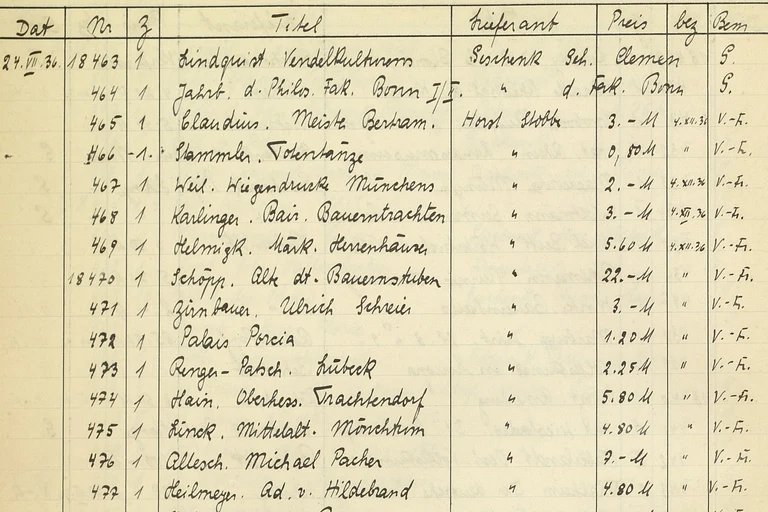 Dat Nr Z Titel Lieferant Preis bez Bem
24.VII.36. 18463 1 Lindquist Vendelkulturens Geschenk Geh. Clemen G.
464 1 Jahrb. d. Philos. Fak. Bonn I/II. " d. Fak. Bonn G.
465 1 Claudius. Meister Bertram. Horst Stobbe 3.-M 4.XII.36 V.-Fr.
466 -1- Stammler. Totentänze " 0,80M " V.-Fr.
467 1 Weil. Wiegendrucke Münchens " 2.-M 4.XII.36 V.-Fr.
468 1 Karlinger. Bair. Bauerntrachten " 3.-M 4.XII.36 V.-Fr.
469 1 Helmigk. Märk. Herrenhäuser " 5.60M 4.XII.36 V.-Fr.
18470 1 Schöpp. Alte dt. Bauernstuben " 22.-M " V.-Fr.
471 1 Zirnbauer. Ulrich Schreier " 3.-M " V.-Fr.
472 1 Palais Porcia " 1.20M " V.-Fr.
473 1 Renger-Patsch. Lübeck " 2.25M " V.-Fr.
474 1 Hain. Oberhess. Trachtendorf " 5.80M " V.-Fr.
475 1 Linck. Mittelalt. Mönchtum " 4.80M " V.-Fr.
476 1 Allesch. Michael Pacher " 7.-M " V.-Fr.
477 1 Heilmeyer. Ad. v. Hildebrand " 4.80M " V.-Fr.